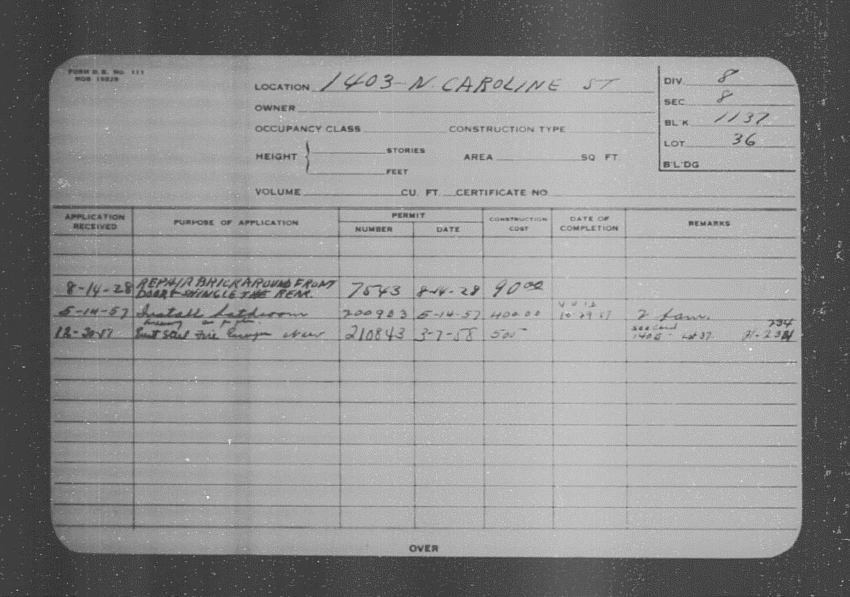 FORM B.B. NO. 111
LOCATION 1403-N. CAROLINE ST
OWNER
OCCUPANCY CLASS CONSTRUCTION TYPE
HEIGHT STORIES AREA SQ FT
FEET
VOLUME CU. FT. CERTIFICATE NO.
DIV. 8
SEC. 8
BL'K 1137
LOT 36
B'L'DG
APPLICATION RECEIVED PURPOSE OF APPLICATION PERMIT NUMBER DATE CONSTRUCTION COST DATE OF COMPLETION REMARKS
8-14-28 REPAIR BRICK AROUND FRONT
DOOR & SHINGLE THE REAR. 7543 8-14-28 90.00
5-14-57 Install bathroom 200903 5-14-57 400.00 VOID 10-29-57 2 fam.
12-30-57 Fire New 210843 3-7-58 500 see card
1405 - Lot 37.
OVER